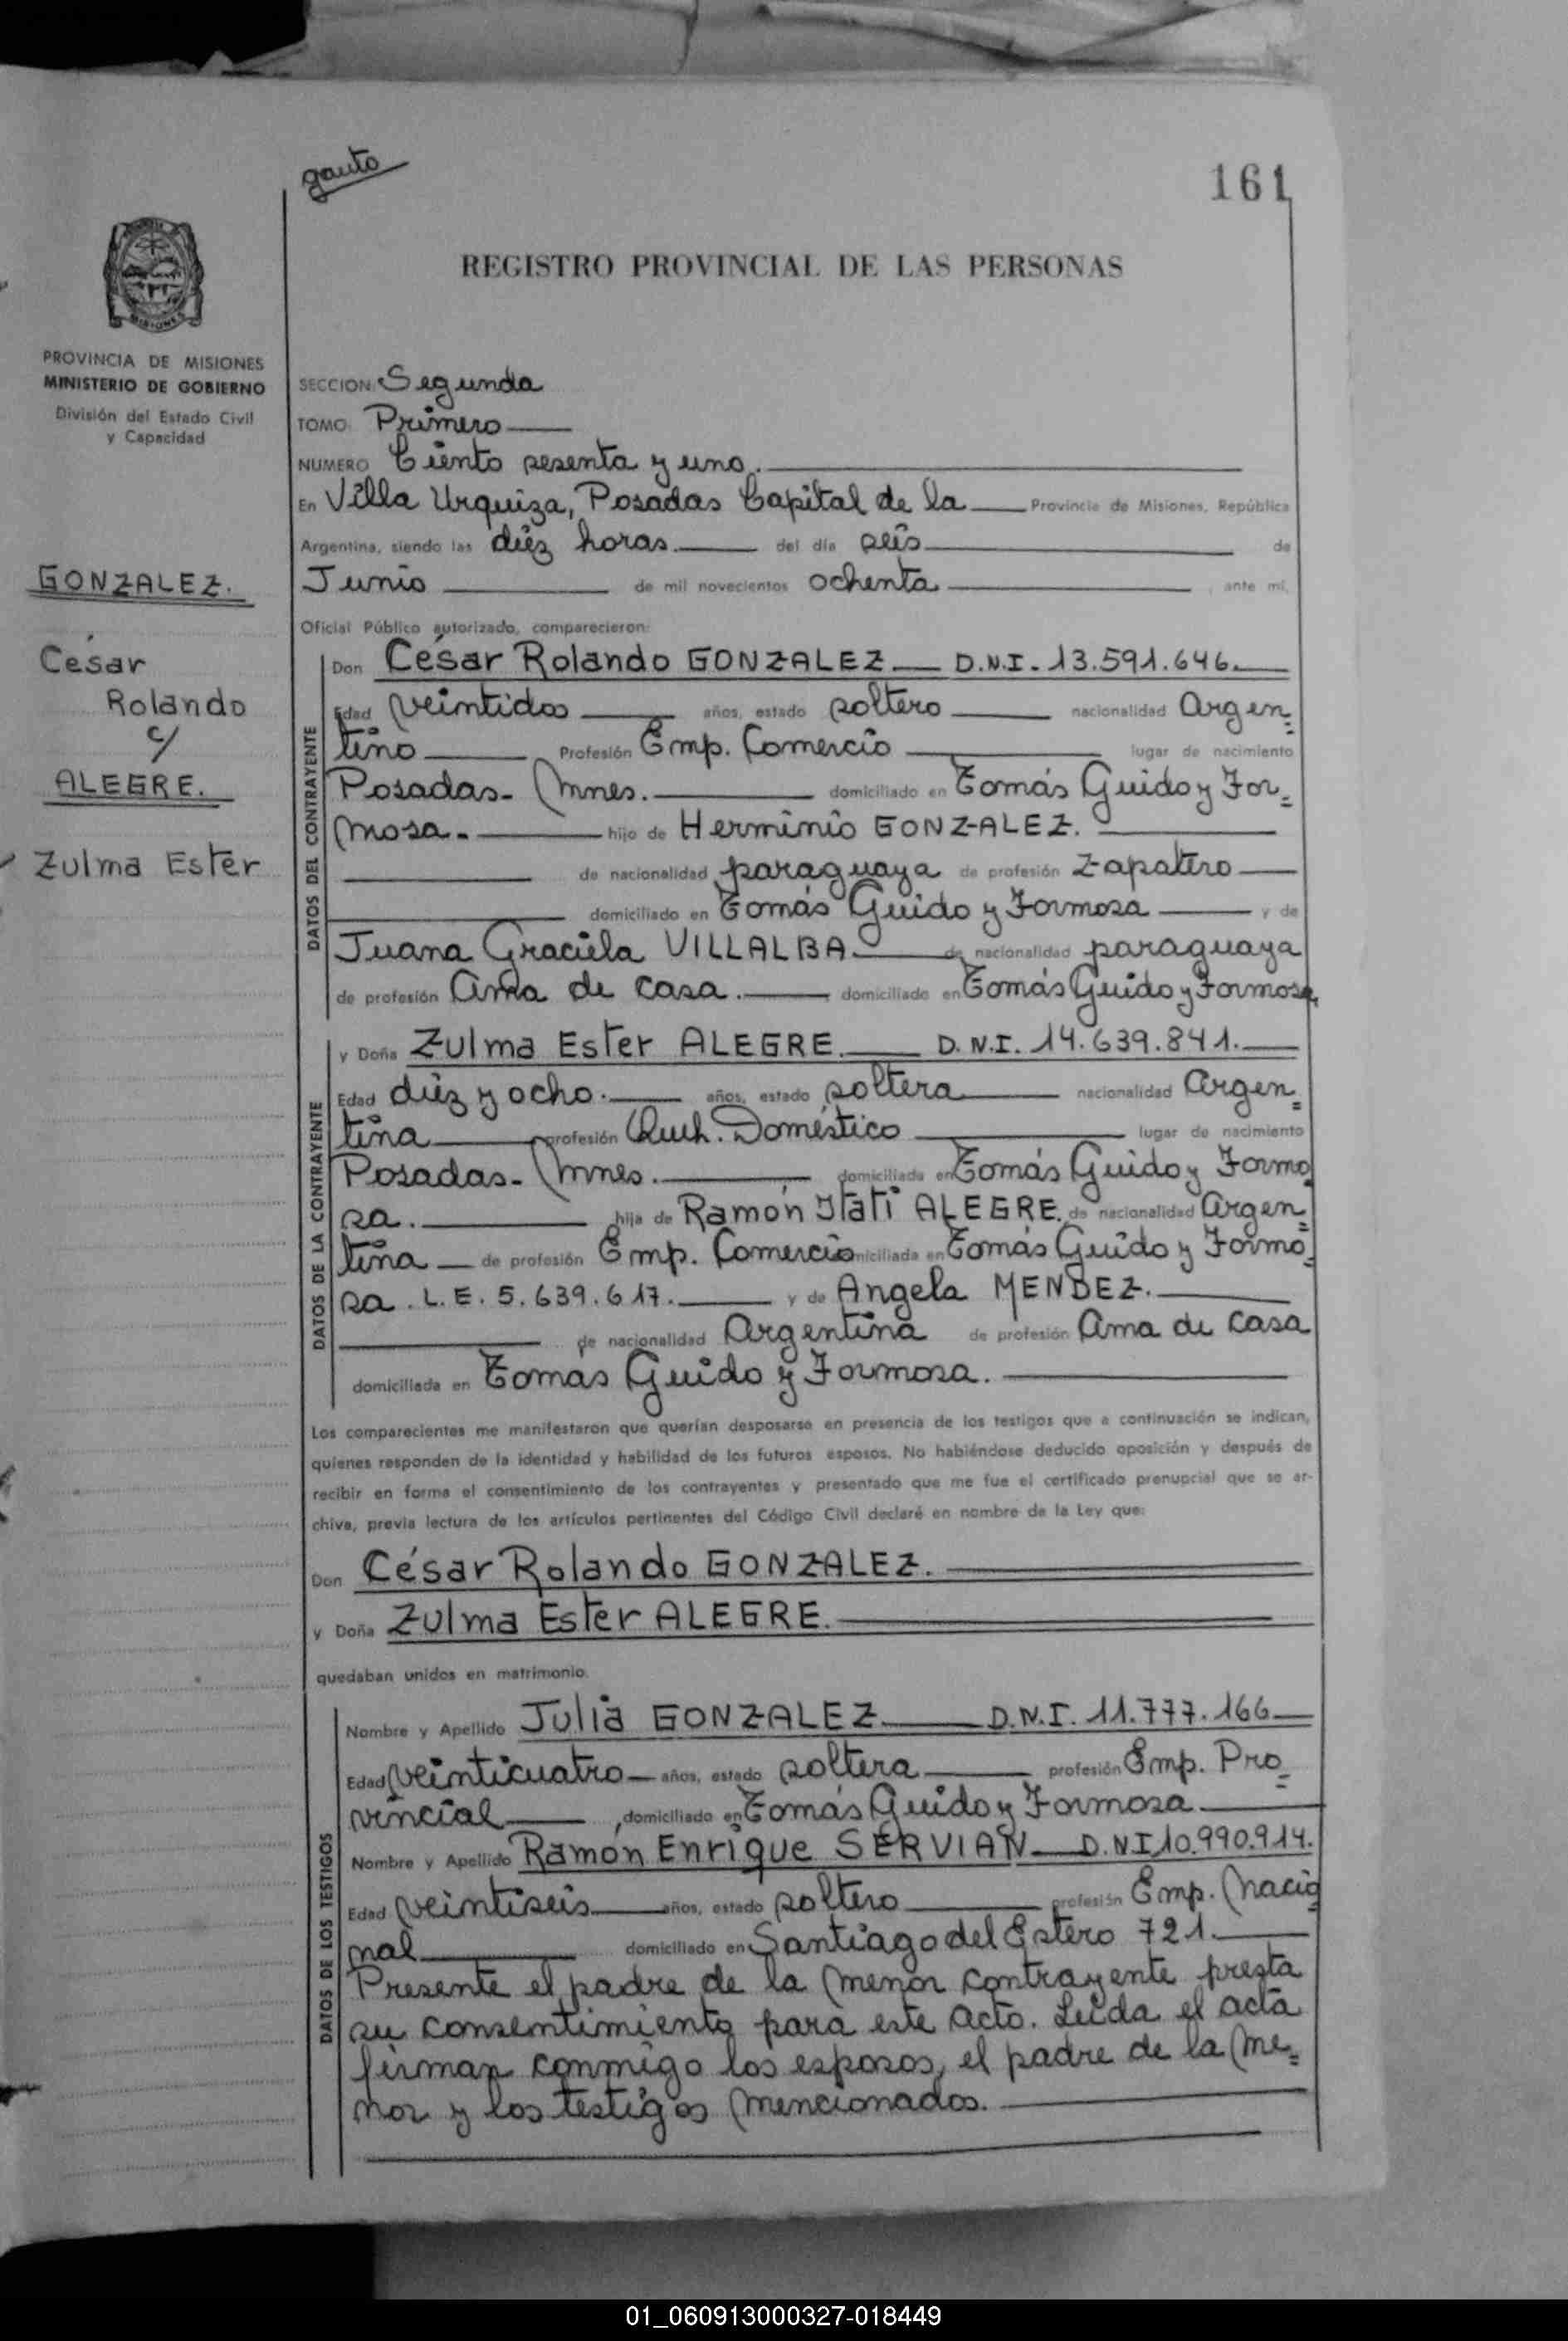 gauto
161
REGISTRO PROVINCIAL DE LAS PERSONAS
PROVINCIA DE MISIONES
MINISTERIO DE GOBIERNO
División del Estado Civil
y Capacidad
GONZALEZ.
César
Rolando
c/
ALEGRE.
Zulma Ester
SECCION: Segunda
TOMO: Primero
NUMERO Ciento sesenta y uno.
En Villa Urquiza, Posadas Capital de la Provincia de Misiones, República
Argentina, siendo las diéz horas. del día seis de
Junio de mil novecientos ochenta , ante mí,
Oficial Público autorizado, comparecieron:
DATOS DEL CONTRAYENTE
Don César Rolando GONZALEZ D.N.I. 13.591.646.
Edad veintidos años, estado soltero nacionalidad Argen=
tino Profesión Emp. Comercio lugar de nacimiento
Posadas- Mnes. domiciliado en Tomás Guido y For=
mosa. hijo de Herminio GONZALEZ.
de nacionalidad paraguaya de profesión Zapatero
domiciliado en Tomás Guido y Formosa y de
Juana Graciela VILLALBA. de nacionalidad paraguaya
de profesión Ama de casa. domiciliado en Tomás Guido y Formosa.
DATOS DE LA CONTRAYENTE
y Doña Zulma Ester ALEGRE. D.N.I. 14.639.841.
Edad diéz y ocho. años, estado soltera nacionalidad Argen=
tina profesión Queh. Doméstico lugar de nacimiento
Posadas- Mnes. domiciliada en Tomás Guido y Formo
sa. hija de Ramón Itatí ALEGRE. de nacionalidad Argen=
tina de profesión Emp. Comercio domiciliada en Tomás Guido y Formo=
sa. L.E. 5.639.617. y de Angela MENDEZ.
de nacionalidad Argentina de profesión Ama de casa
domiciliada en Tomás Guido y Formosa.
Los comparecientes me manifestaron que querían desposarse en presencia de los testigos que a continuación se indican,
quienes responden de la identidad y habilidad de los futuros esposos. No habiéndose deducido oposición y después de
recibir en forma el consentimiento de los contrayentes y presentado que me fue el certificado prenupcial que se ar-
chiva, previa lectura de los artículos pertinentes del Código Civil declaré en nombre de la Ley que:
Don César Rolando GONZALEZ.
y Doña Zulma Ester ALEGRE.
quedaban unidos en matrimonio.
DATOS DE LOS TESTIGOS
Nombre y Apellido Julia GONZALEZ D.N.I. 11.777.166
Edad veinticuatro años, estado soltera profesión Emp. Pro=
vincial , domiciliado en Tomás Guido y Formosa
Nombre y Apellido Ramón Enrique SERVIAN D.N.I 10.990.914.
Edad veintiseis años, estado soltero profesión Emp. Nacio
nal domiciliado en Santiago del Estero 721.
Presente el padre de la menor contrayente presta
su consentimiento para este acto. Leida el acta
firman conmigo los esposos, el padre de la me=
nor y los testigos mencionados.
01_060913000327-018449